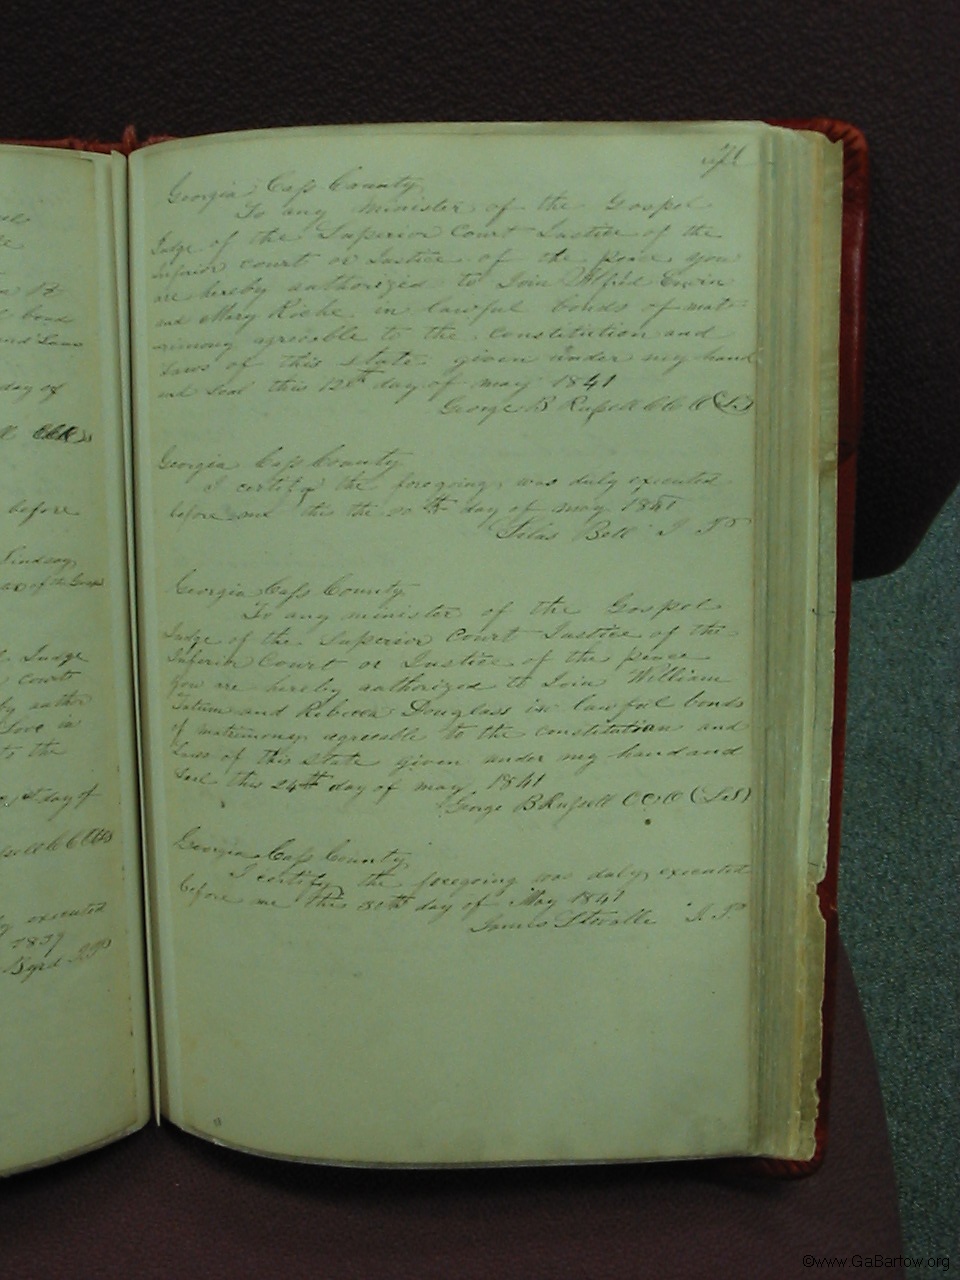 day of
before
Lindsay
of the Gosp
Judge
Courts
by author
Love in
to the
21st day of
executed
1839
Byrd J P
71
Georgia Cass County
To any minister of the Gospel
Judge of the Superior Court Justice of the
Inferior court or Justice of the peace you
are hereby authorized to Join Alfrd Erwin
and Mary Roshe in lawful bonds of mat-
rimony agreeable to the constitution and
Laws of this state given under my hand
and Seal this 12th day of may 1841
George B Russell C C O (LS)
Georgia Cass County
I certify the foregoing was duly executed
before me this the 20th day of may 1841
Silas Bell J P
Georgia Cass County
To any minister of the Gospel
Judge of the Superior Court Justice of the
Inferior Court or Justice of the peace
You are hereby authorized to Join William
Tatum and Rebecca Douglass in lawful bonds
of matrimony agreeable to the constitution and
Laws of this state given under my hand and
Seal this 24th day of may 1841
George B Russell C C O (LS)
Georgia Cass County
I certify the foregoing was duly executed
before me this 30th day of May 1841
James Stovalle J P
©www.GaBartow.org